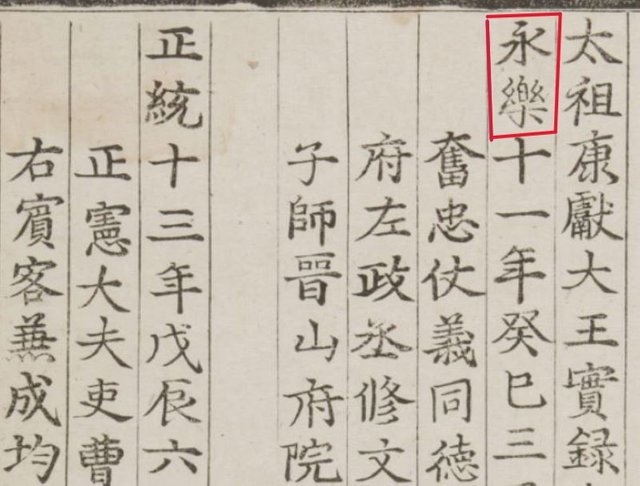 太祖康獻大王實録
永樂十一年癸巳三
奮忠仗義同德
府左政丞修文
子師晉山府院
正統十三年戊辰六
正憲大夫吏曹
右賓客兼成均